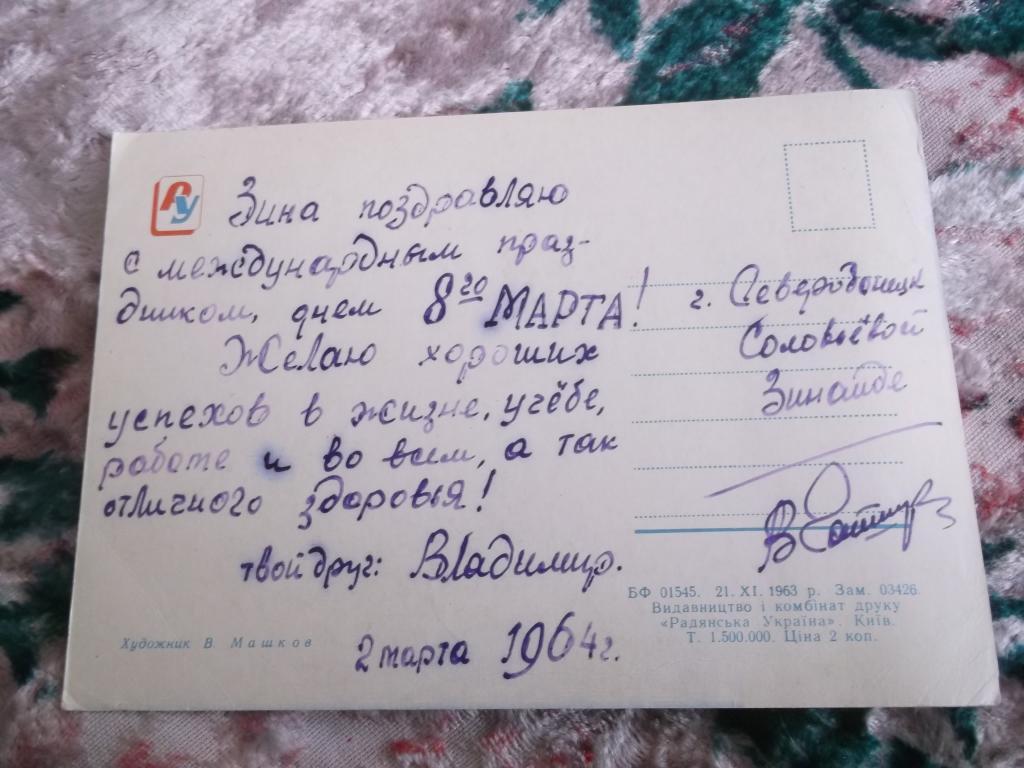 РУ
Зина поздравляю
с международным праз-
дником, днем 8го МАРТА!
Желаю хороших
успехов в жизне, учёбе,
работе и во всем, а так
отличного здоровья!
твой друг: Владимир.
2 марта 1964 г.
Художник В. Машков
г. Северодонецк
Соловьёвой
Зинаиде
БФ 01545. 21. XI. 1963 р. Зам. 03426.
Видавництво і комбінат друку
«Радянська Україна». Київ.
Т. 1.500.000. Ціна 2 коп.